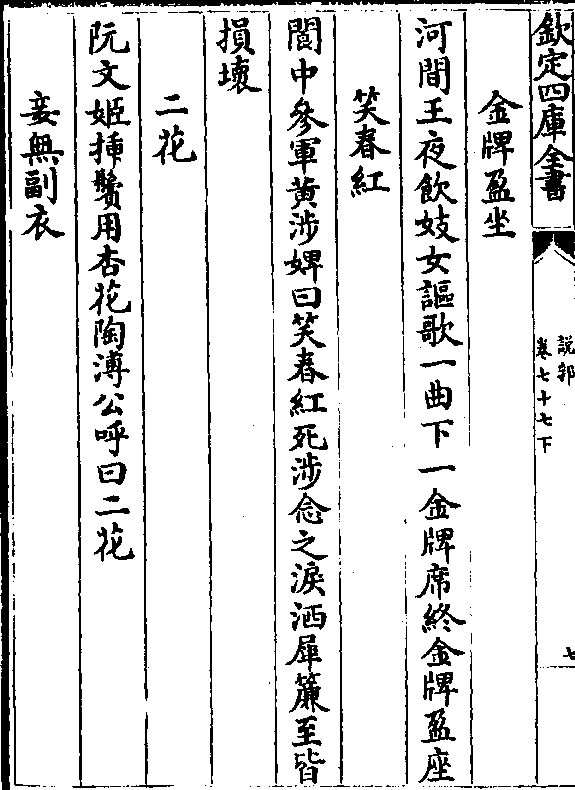 欽定四庫全書
說郛
卷七十七下
七
金牌盈坐
河間王夜飲妓女謳歌一曲下一金牌席終金牌盈座
笑春紅
閬中參軍黃涉婢曰笑春紅死涉念之淚洒犀簾至皆
損壞
二花
阮文姬揷鬢用杏花陶溥公呼曰二花
妾無副衣